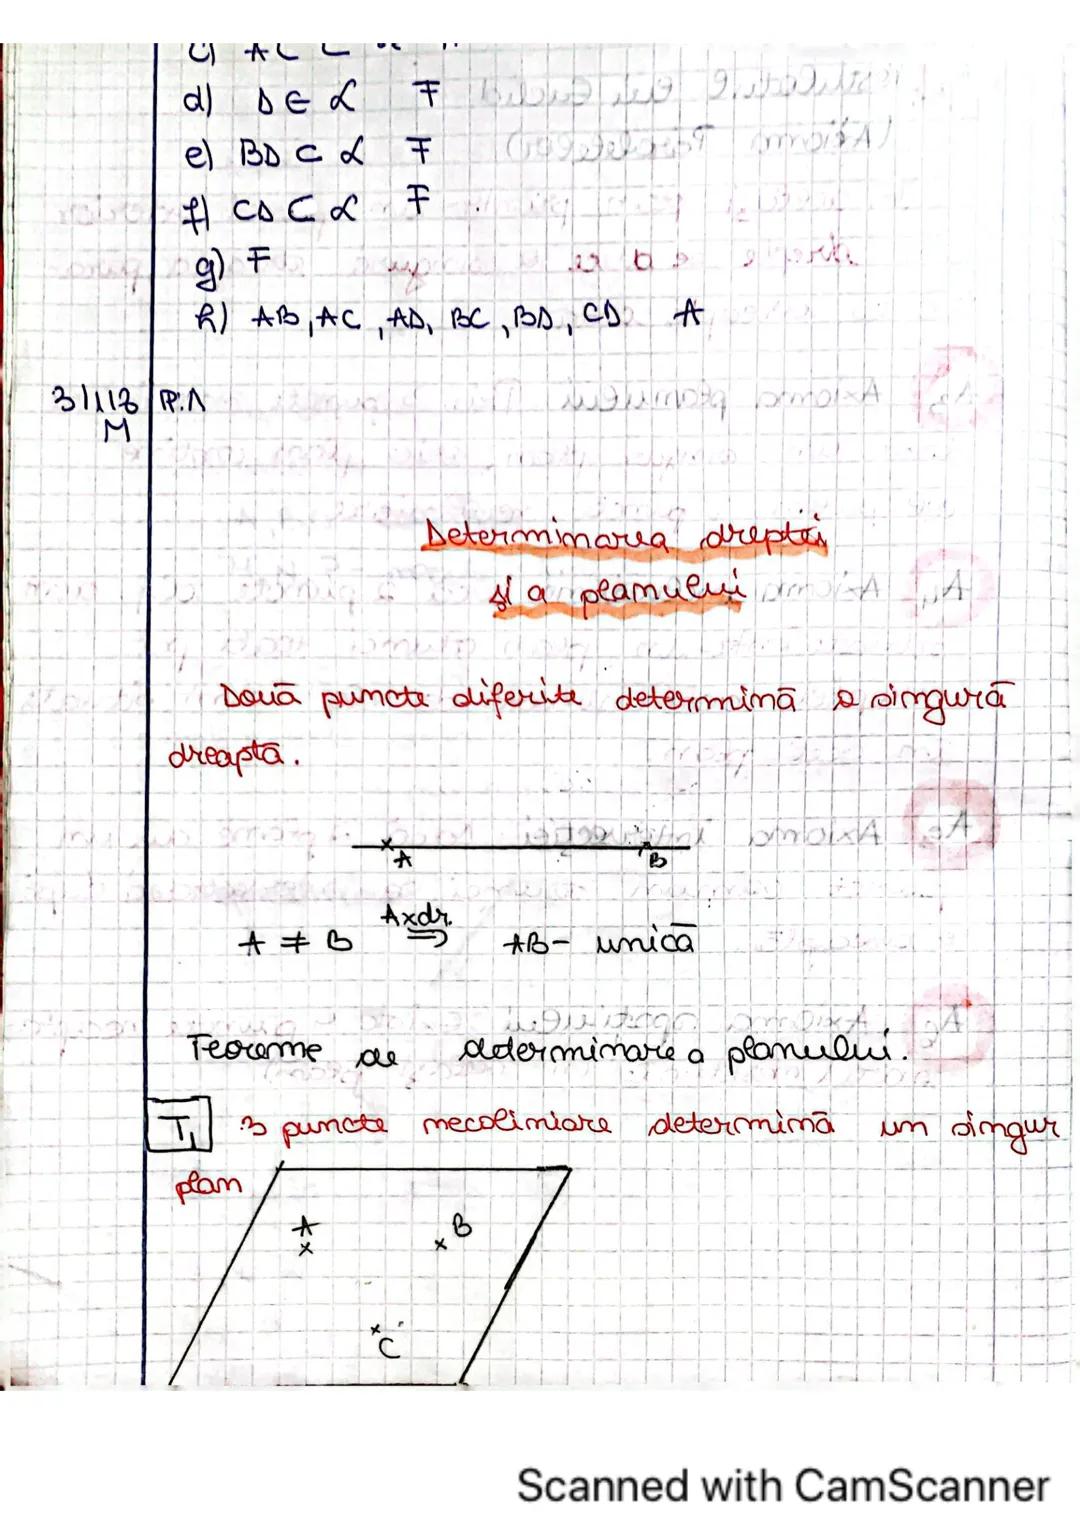 d) D ∈ α F
e) BD ⊂ α F
f) CD ⊂ α F
g) F
h) AB, AC, AD, BC, BD, CD A
3/113 P.A
M
Determinarea dreptei
și a planului
Două puncte diferite determină o singură
dreaptă.
A B
A ≠ B Ax dr. ⇒ AB - unică
Teoreme de determinare a planului.
T₁ 3 puncte necoliniare determină un singur
plan
A B
C
Scanned with CamScanner